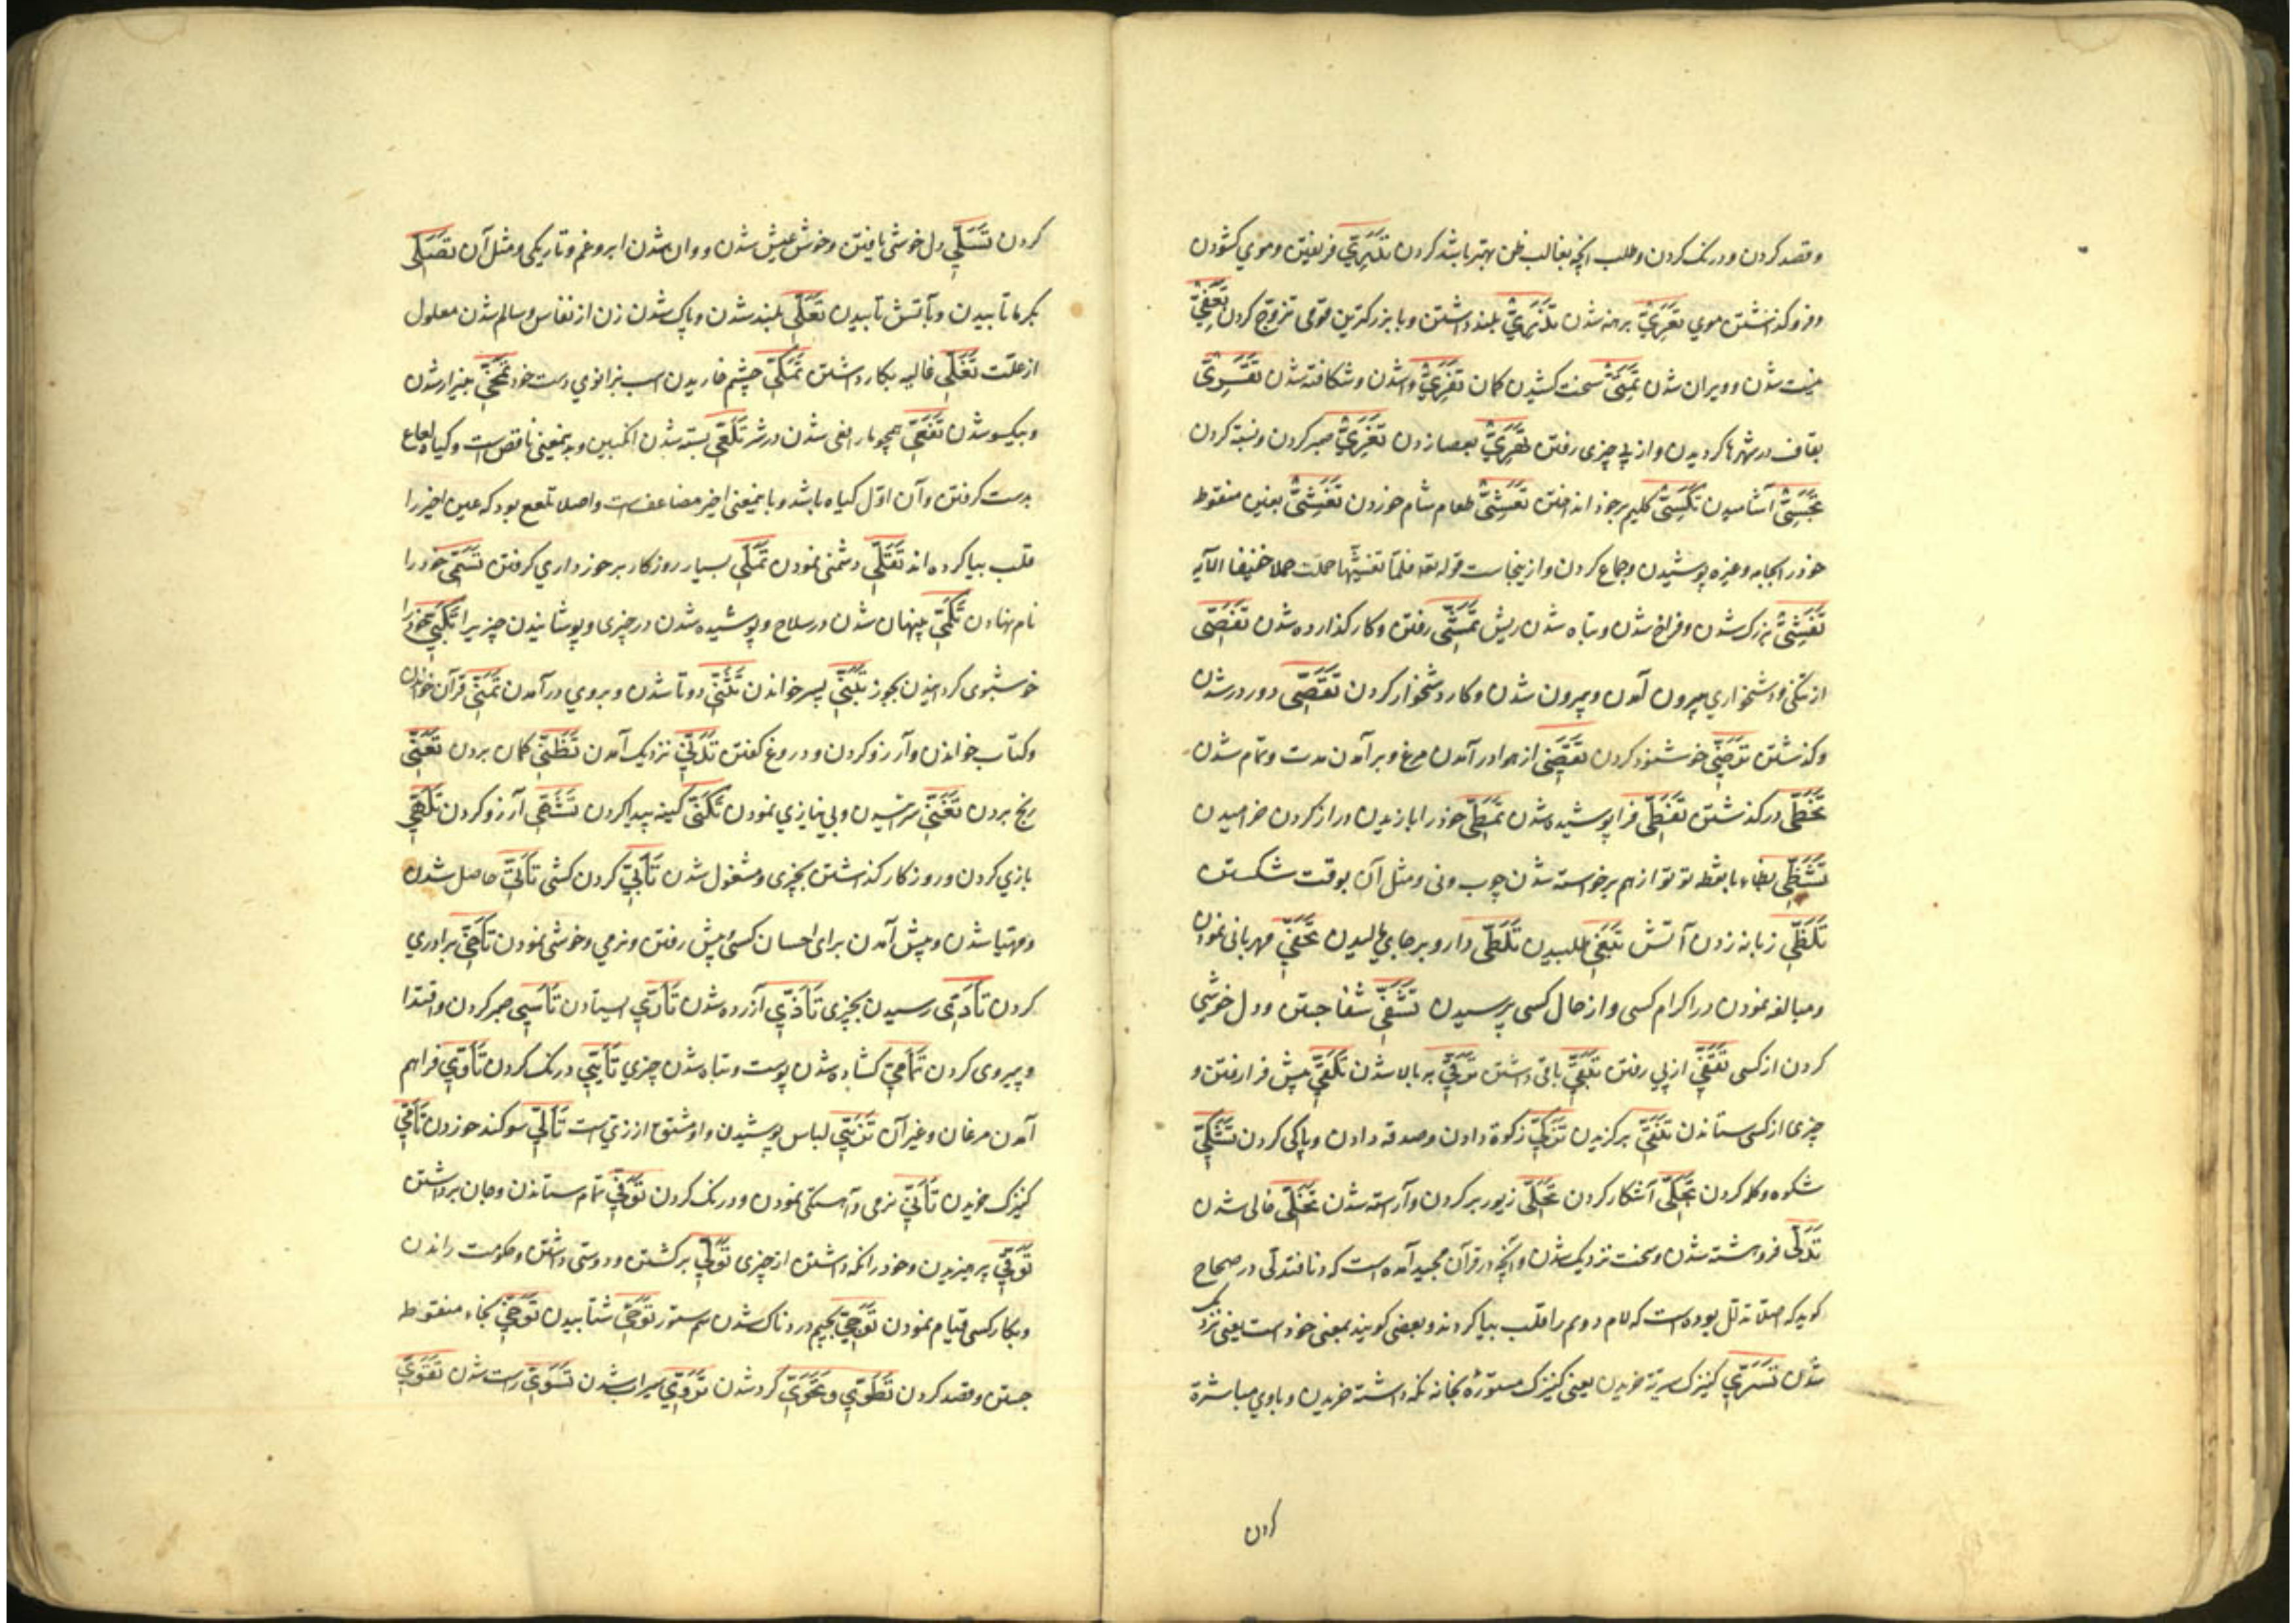 و قصد کردن و درنک کردن و طلب انچه بغالب ظن بهتر باشد کردن تَدَرِّي فریفتن و موي کشودن
و فرو کذاشتن موي تَعَرِّيْ برهنه شدن تَذَرِّيْ بلند داشتن و با بزرکترین قومی تزوج کردن تَعَفِّيْ
نیست شدن و ویران شدن سخت کشیدن کمان تَفَرِّيْ واشدن و شکافته شدن
بقاف در شهرها کردیدن و از پی چیزی رفتن بعصا زدن صبر کردن و نسبة کردن
تَحَسِّيْ آشامیدن تَكَسِّيْ کلیم بر خود انداختن تَعَشِّيْ طعام شام خوردن تَغَشِّيْ بغین منقوط
خود را بجامه و غیره پوشیدن و جماع کردن و ازینجاست قوله تعه فلمّا تغشّیها حملت حملا خفیفا الآیه
تَفَشِّيْ بزرک شدن و فراخ شدن و تباه شدن ریش تَمَشِّي رفتن و کار کذارده شدن تَفَصِّي
از تنکی و دشخواري بیرون آمدن و بیرون شدن و کار دشخوار کردن تَقَصِّي دور در شدن
و کذشتن تَرَضِّي خوشنود کردن تَقَضِّي از هوا در آمدن مرغ و بر آمدن مدت و تمام شدن
تَخَطِّي در کذشتن تَغَطِّي فرا پوشیده شدن تَمَطِّي خود را بازیدن دراز کردن خرامیدن
تَشَظِّي بظاء با نقطه تو تو از هم برخواسته شدن چوب و نی و مثل آن بوقت شکستن
تَلَظِّي زبانه زدن آتش تَبَغِّي طلبیدن تَلَطِّي دارو بر جاي مالیدن تَحَفِّي مهربانی نمودن
و مبالغه نمودن در اکرام کسی و از حال کسی پرسیدن تَشَفِّي شفا جستن و دل خوشي
کردن از کسی تَقَفِّي از پی رفتن تَبَقِّي باقی داشتن تَرَقِّي بر بالا شدن تَلَقِّي پیش فرا رفتن و
چیزی از کسی ستاندن تَنَقِّي برکزیدن تَزَكِّي زکوة دادن و صدقه دادن و پاکی کردن تَشَكِّي
شکوه و کله کردن تَجَلِّي آشکار کردن تَحَلِّي زیور بر کردن و آراسته شدن تَخَلِّي خالی شدن
تَدَلِّي فروهشته شدن و سخت نزدیک شدن و آنچه در قرآن مجید آمده است که دنا فتدلی در صحاح
کوید که اصلا تدلل بوده است که لام دویم را قلب بیا کردند و بعضی کویند بمعنی خود است یعنی نزدیک
شدن تَسَرِّي کنیزک سریة خریدن یعنی کنیزک مستوره بخانه نکه داشته خریدن و با وي مباشرة
کردن
کردن تَسَلِّي دل خوشی یافتن و خوش عیش شدن و وا شدن ابر و غم و تاریکی و مثل آن تَصَلِّي
بکرما تابیدن و بآتش تابیدن تَعَلِّي بلند شدن و پاک شدن زن از نفاس و سالم شدن معلول
از علّت تَغَلِّي غالیه بکار داشتن چشم خاریدن اسب بزانوي دست خود بیزار شدن
و بیکسو شدن همچو مار افعی شدن در شر بسته شدن انکبین و بدینمعنی ناقص است و کیاه لعاع
بدست کرفتن و آن اوّل کیاه باشد و باینمعنی اخیر مضاعف است و اصلا تلعع بود که عین اخیر را
قلب بیا کرده اند تَقَلِّي دشمنی نمودن تَمَلِّي بسیار روزکار برخورداري کرفتن تَسَمِّي خود را
نام نهادن تَكَمِّي پنهان شدن در سلاح و پوشیده شدن در چیزی و پوشانیدن چیزیرا تَكَبِّي خود را
خوشبوی کردانیدن ببخور تَبَنِّي پسر خواندن تَثَنِّي دو تا شدن و بروي در آمدن تَمَنِّي قرآن خواندن
و کتاب خواندن و آرزو کردن و دروغ کفتن تَدَنِّي نزدیک آمدن تَظَنِّي کمان بردن تَعَنِّي
رنج بردن تَغَنِّي سرائیدن و بی نیازي نمودن تَكَنِّي کنیه پیدا کردن تَشَهِّي آرزو کردن تَلَهِّي
بازي کردن و روزکار کذاشتن بچیزی و مشغول شدن تَأَبِّي کردن کشی تَأَتِّي حاصل شدن
و مهیّا شدن و پیش آمدن برای احسان کسی پیش رفتن و نرمي و خوشی نمودن تَأَخِّي برادري
کردن تَأَدِّي رسیدن بچیزی تَأَذِّي آزرده شدن تَأَرِّي ایستادن تَأَسِّي صبر کردن و اقتدا
و پیروی کردن کشاده شدن پوست و تباه شدن چیزي تَأَيِّي درنک کردن تَأَوِّي فراهم
آمدن مرغان و غیر آن تَزَيِّي لباس پوشیدن و او مشتق از زيّ است تَأَلِّي سوکند خوردن تَأَمِّي
کنیزک خریدن تَأَنِّي نرمی و آهستکی نمودن و درنک کردن تَوَفِّي تمام ستاندن و جان برداشتن
تَوَقِّي پرهیزیدن و خود را نکه داشتن از چیزی تَوَلِّي برکشتن و دوستی داشتن و حکومت راندن
و بکار کسی قیام نمودن تَوَجِّي بجیم دردناک شدن سم ستور تَوَحِّي شتابیدن تَوَخِّي بخاء منقوط
جستن و قصد کردن تَطَوِّي و تَحَوِّي کرد شدن تَرَوِّي سیراب شدن تَسَوِّي راست شدن تَقَوِّي